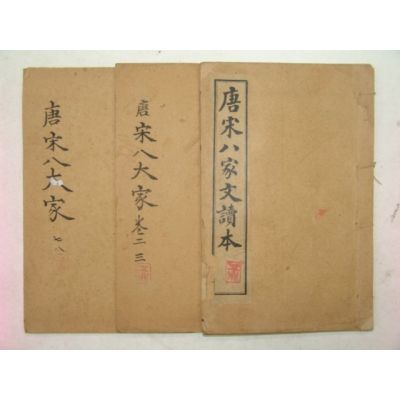 唐宋八家文讀本
唐宋八大家 卷二 三
唐宋八大家 七八